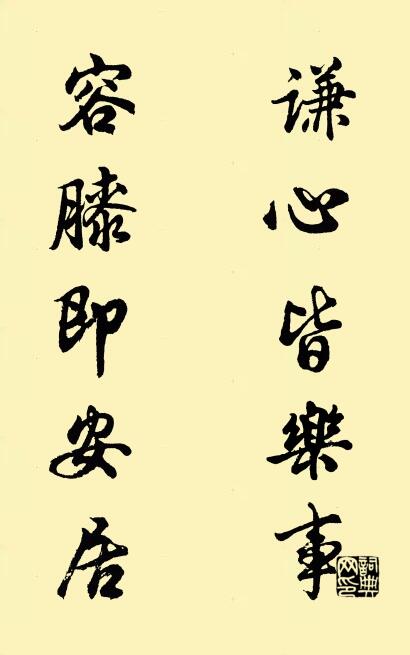 谦心皆樂事
容膝即安居
詞典网印